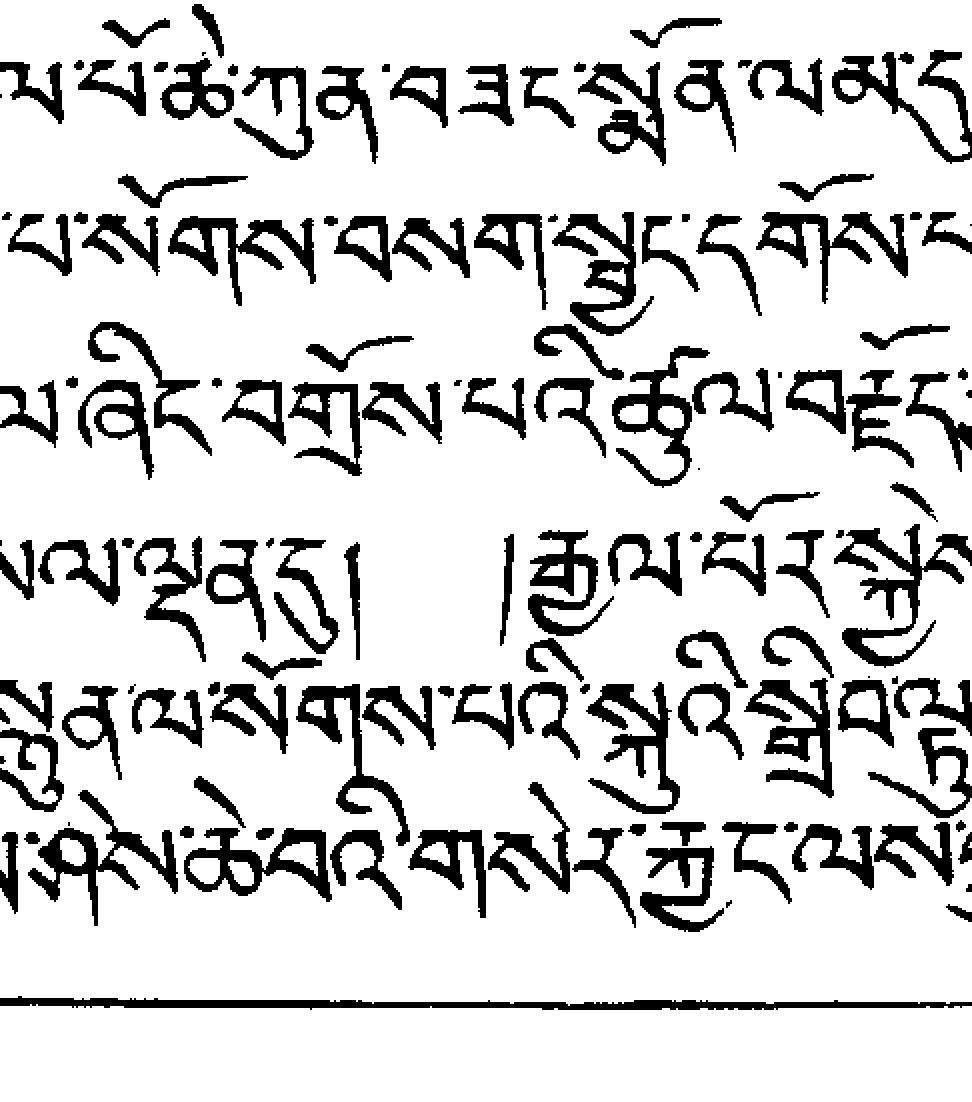 ལ་པོ་ཆེ་ཀུན་བཟང་སྨོན་ལམ་དུ
པ་སོགས་བསག་སྦྱང་དགོས་པ
ལ་ཞིང་བགྲོས་པའི་ཚུལ་བརྗོད་
ལ་ལྡན་དུ། །རྒྱལ་པོར་སྐྱེ
སྟུན་ལ་སོགས་པའི་སྐུའི་སྒྲིབ་ལྟ
ཤེས་ཆེ་བའི་གསེར་རྐྱང་ལས